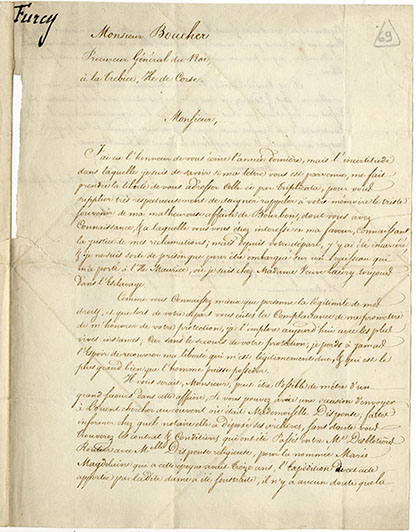 Furcy
69
Monsieur Boucher
Procureur Général du Roi,
à la Cour, Ile de Corse.
Monsieur,
J'ai eu l'honneur de vous écrire l'année dernière, mais l'incertitude
dans laquelle je suis de savoir si ma lettre vous est parvenue, me fait
prendre la liberté de vous adresser celle ci par triplicata, pour vous
supplier très respectueusement de daigner rappeler à votre mémoire le triste
souvenir de ma malheureuse affaire de Bourbon, dont vous avez
Connaissance, & à laquelle vous vous êtes intéressé en ma faveur, Connaissant
la justice de mes réclamations; mais depuis votre départ, j'y ai été incarcéré
& je ne suis sorti de prison que pour être embarqué sur un vaisseau qui
m'a porté à l'Ile Maurice, où je suis chez Madame Veuve Lory toujours
Dans l'Esclavage.
Comme vous Connaissez mieux que personne la légitimité de mes
droits, et que lors de votre départ vous eûtes la Complaisance de me promettre
de m'honorer de votre protection, je l'implore aujourd'hui avec les plus
vives instances, Car sans le secours de votre protection, je perds à jamais
l'Espoir de recouvrer ma liberté qui m'est légitimement due, & qui est le
plus grand bien que l'homme puisse posséder.
Il vous serait, Monsieur, peut être Possible de m'être d'un
grand secours dans cette affaire, Si vous pouviez avoir une occasion d'envoyer
à Lorient chercher au couvent où était Mademoiselle Dispense, faites
informer chez quel notaire elle a déposé ses archives, sans doute vous
trouverez les contrats & Conditions qui ont été Passés entre Me.
avec Melle Dispense religieuse, pour la nommée Marie
Magdelaine que a cette époque avait treize ans, l'Expédition de cet acte
apportée par la dite dame a été soustraite, il n'y a aucun doute que la